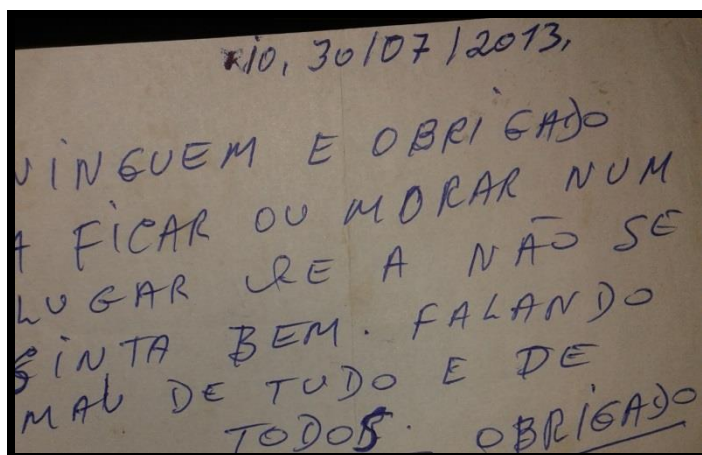 Rio, 30/07/2013,
NINGUEM E OBRIGADO
A FICAR OU MORAR NUM
LUGAR RE A NÃO SE
SINTA BEM. FALANDO
MAU DE TUDO E DE
TODOS. OBRIGADO